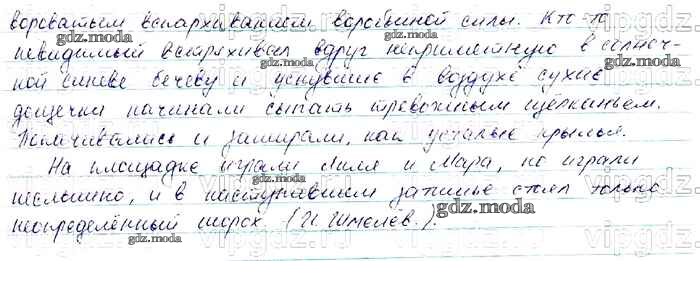 вороватым вспархиванием воробьиной силы. Кто-то
невидимый встряхивал вдруг неприметную в солнеч-
ной синеве бечеву и уснувшие в воздухе сухие
дощечки начинали сыпать тревожным щёлканьем.
Покачивались и замирали, как усталые крылья.
На площадке играли Ляля и Мара, но играли
неслышно, и в наступившем затишье стоял только
неопределённый шорох. (И. Шмелёв.).
gdz.moda
vipgdz